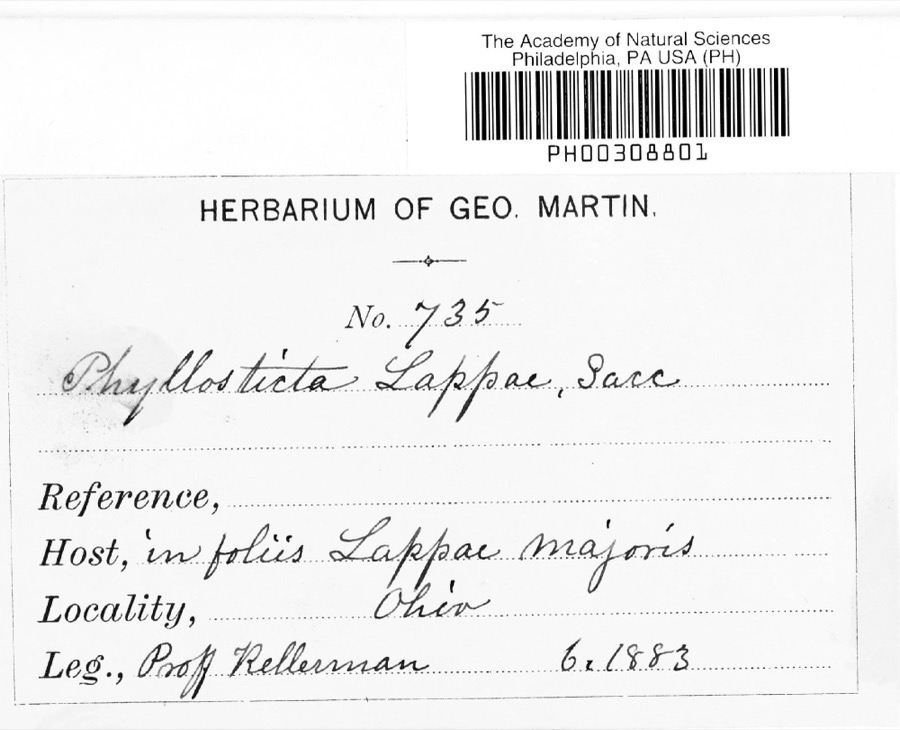 The Academy of Natural Sciences
Philadelphia, PA USA (PH)
PH00308801
HERBARIUM OF GEO. MARTIN.
No. 735
Phyllosticta Lappae, Sacc
Reference,
Host, in foliis Lappae majoris
Locality, Ohio
Leg., Proff Kellerman 6. 1883